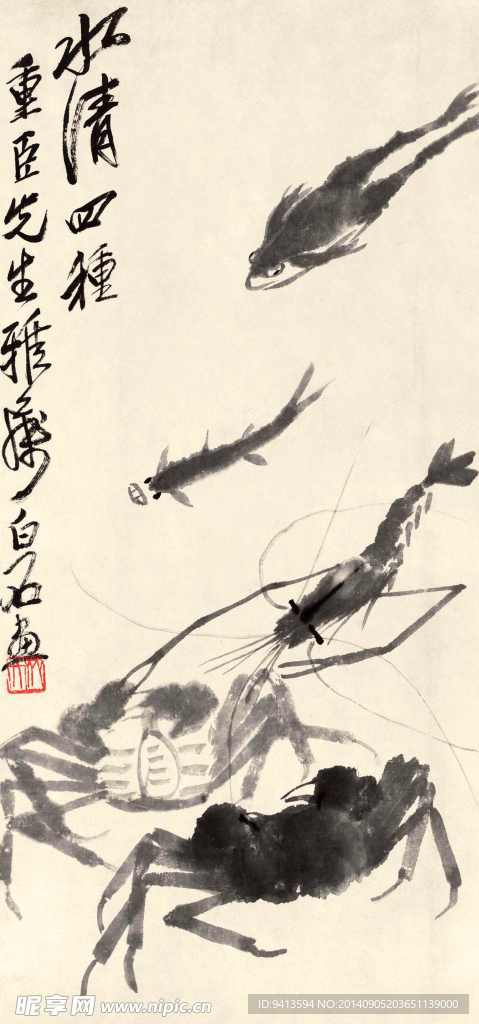 水清四種
重臣先生雅属
白石画
昵享网 www.nipic.cn
ID:9413594 NO:20140905203651139000